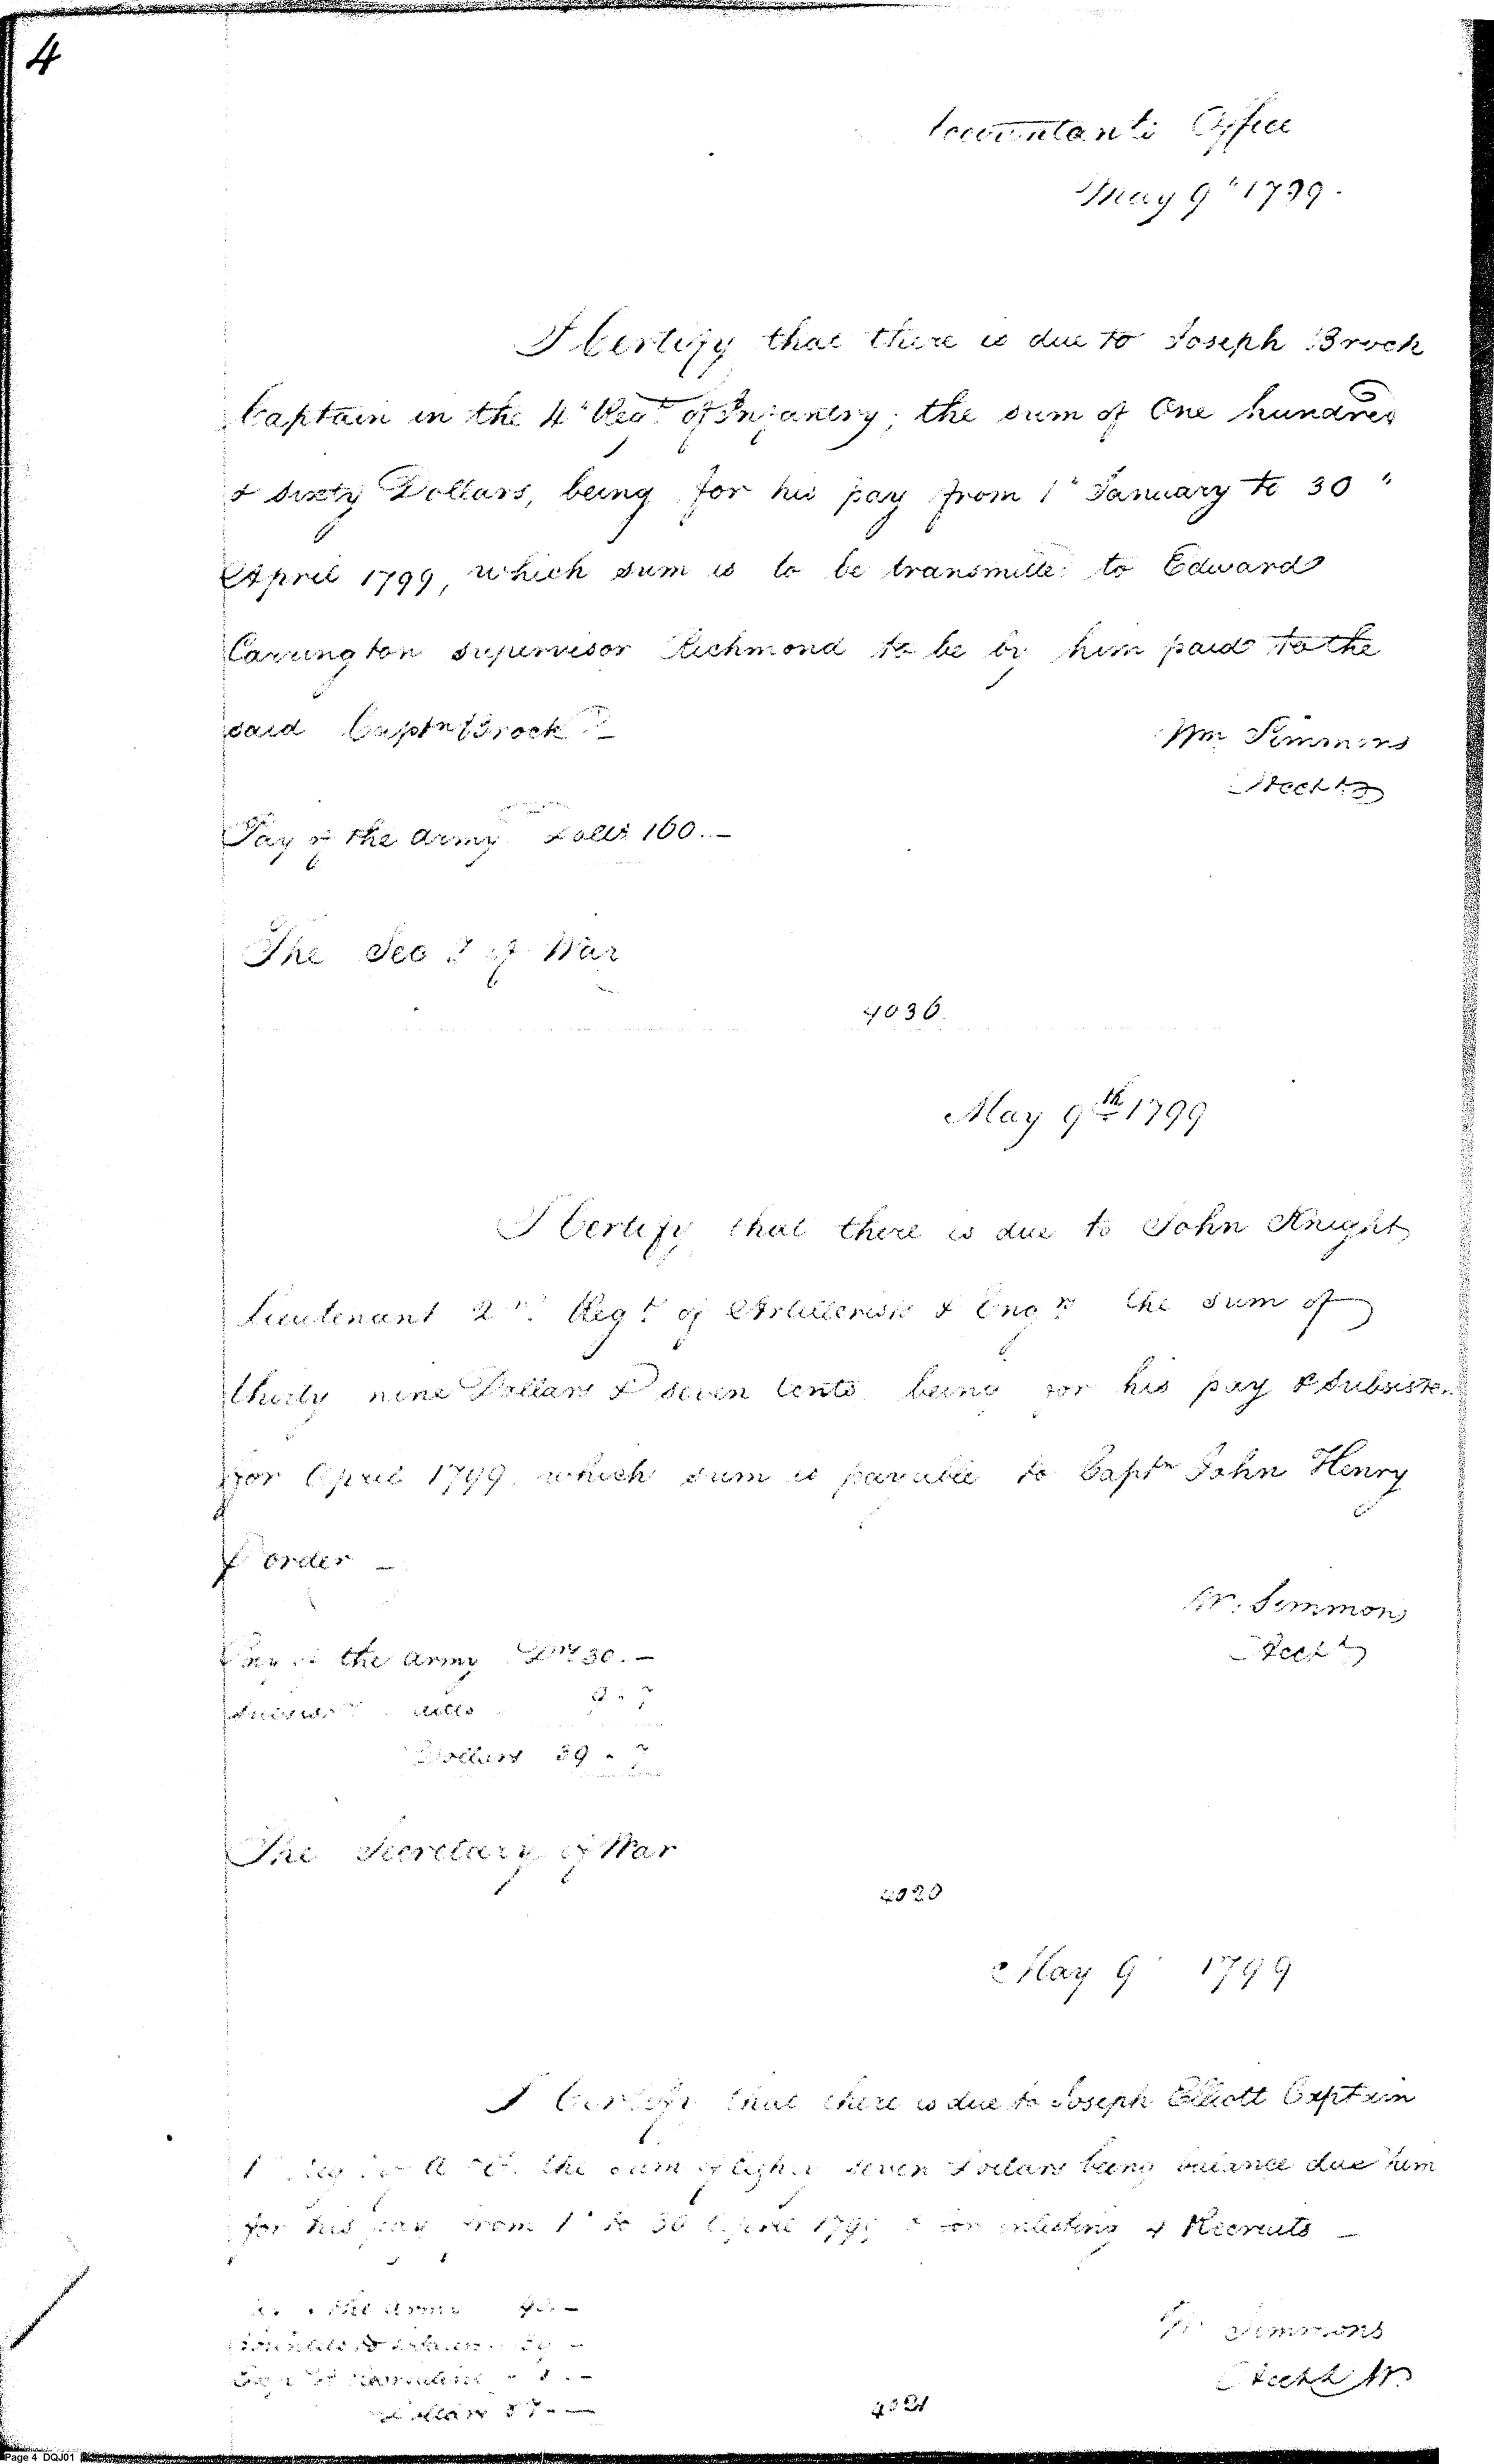 4
Accountants Office
May 9" 1799.
I Certify that there is due to Joseph Brock
Captain in the 4" Regt. of Infantry; the sum of One hundred
& sixty Dollars, being for his pay from 1" January to 30"
April 1799, which sum is to be transmitted to Edward
Carrington supervisor Richmond to be by him paid to the
said Captn Brock
Wm Simmons
Acct
Pay of the Army Dolls 160.—
The Secy of War
4036.
May 9th 1799
I Certify that there is due to John Knight
Lieutenant 2nd. Regt. of Artillerists & Engrs the sum of
thirty nine Dollars & seven Cents being for his pay & Subsisten
for April 1799 which sum is payable to Captn John Henry
order —
W. Simmons
Acct
Pay of the Army Drs 30.—
ditto 9.7
Dollars 39.7
The Secretary of War
4020
May 9 1799
I Certify that there is due to Joseph Elliott Captain
1 Regt of A & E. the sum of Eighty seven Dollars being balance due him
for his pay from 1" to 30 April 1799 & for enlisting 4 Recruits —
the Army 40.—
Dollars 87.—
W Simmons
Acctt W.
4021
Page 4 DQJ01